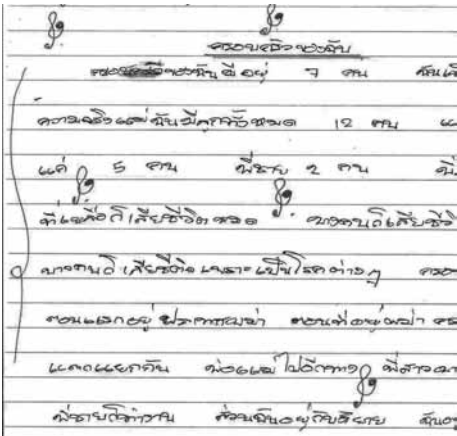 ครอบครัวของฉัน
ครอบครัวของฉันมีอยู่ 7 คน ฉันเ
ความจริงแม่ฉันมีลูกทั้งหมด 12 คน แ
แค่ 5 คน พี่ชาย 2 คน
ที่เหลือก็เสียชีวิตหมด บางคนก็เสียชีวิ
บางคนก็เสียชีวิต เพราะเป็นโรคต่างๆ ครอ
ตอนแรกอยู่ประเทศพม่า ตอนที่อยู่พม่า
แตกแยกกัน พ่อแม่ไปอีกทาง พี่สาว
พี่ชายก็ทำงาน ส่วนฉันอยู่กับยาย ฉัน